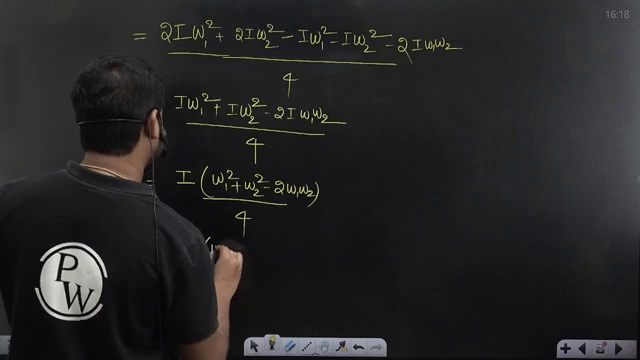 16:18
= 2Iω₁² + 2Iω₂² - Iω₁² - Iω₂² - 2Iω₁ω₂
4
Iω₁² + Iω₂² - 2Iω₁ω₂
4
I (ω₁² + ω₂² - 2ω₁ω₂)
4
PW